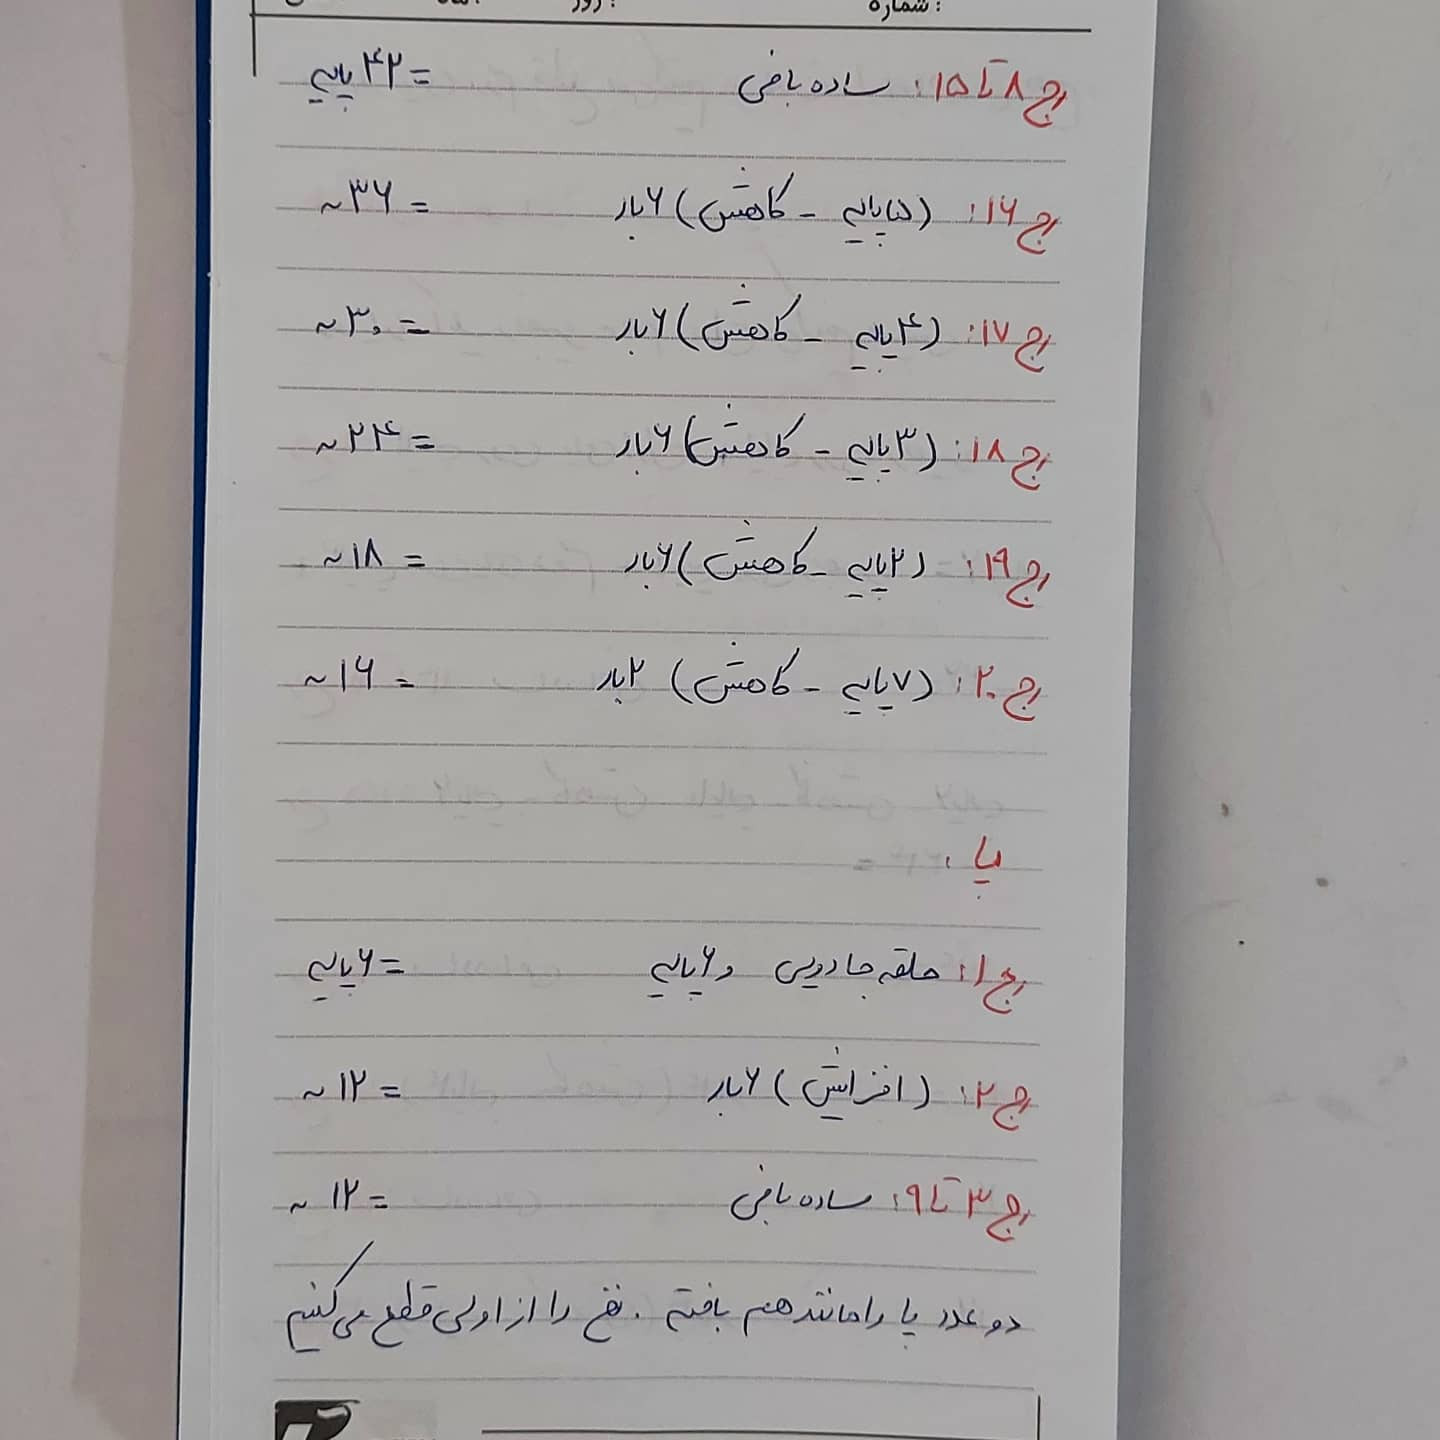 شماره :
روز :
رج ۸ تا ۱۵: ساده بافی = ۴۲ پایه
رج ۱۶: (۵ پایه - کاهش) ۶ بار = ۳۶ ~
رج ۱۷: (۴ پایه - کاهش) ۶ بار = ۳۰ ~
رج ۱۸: (۳ پایه - کاهش) ۶ بار = ۲۴ ~
رج ۱۹: (۲ پایه - کاهش) ۶ بار = ۱۸ ~
رج ۲۰: (۷ پایه - کاهش) ۲ بار = ۱۶ ~
پا:
رج ۱: حلقه جادویی و ۶ پایه = ۶ پایه
رج ۲: (افزایش) ۶ بار = ۱۲ ~
رج ۳ تا ۹: ساده بافی = ۱۲ ~
دو عدد پا را مانند هم بافته . نخ را از اولی قطع می کنیم